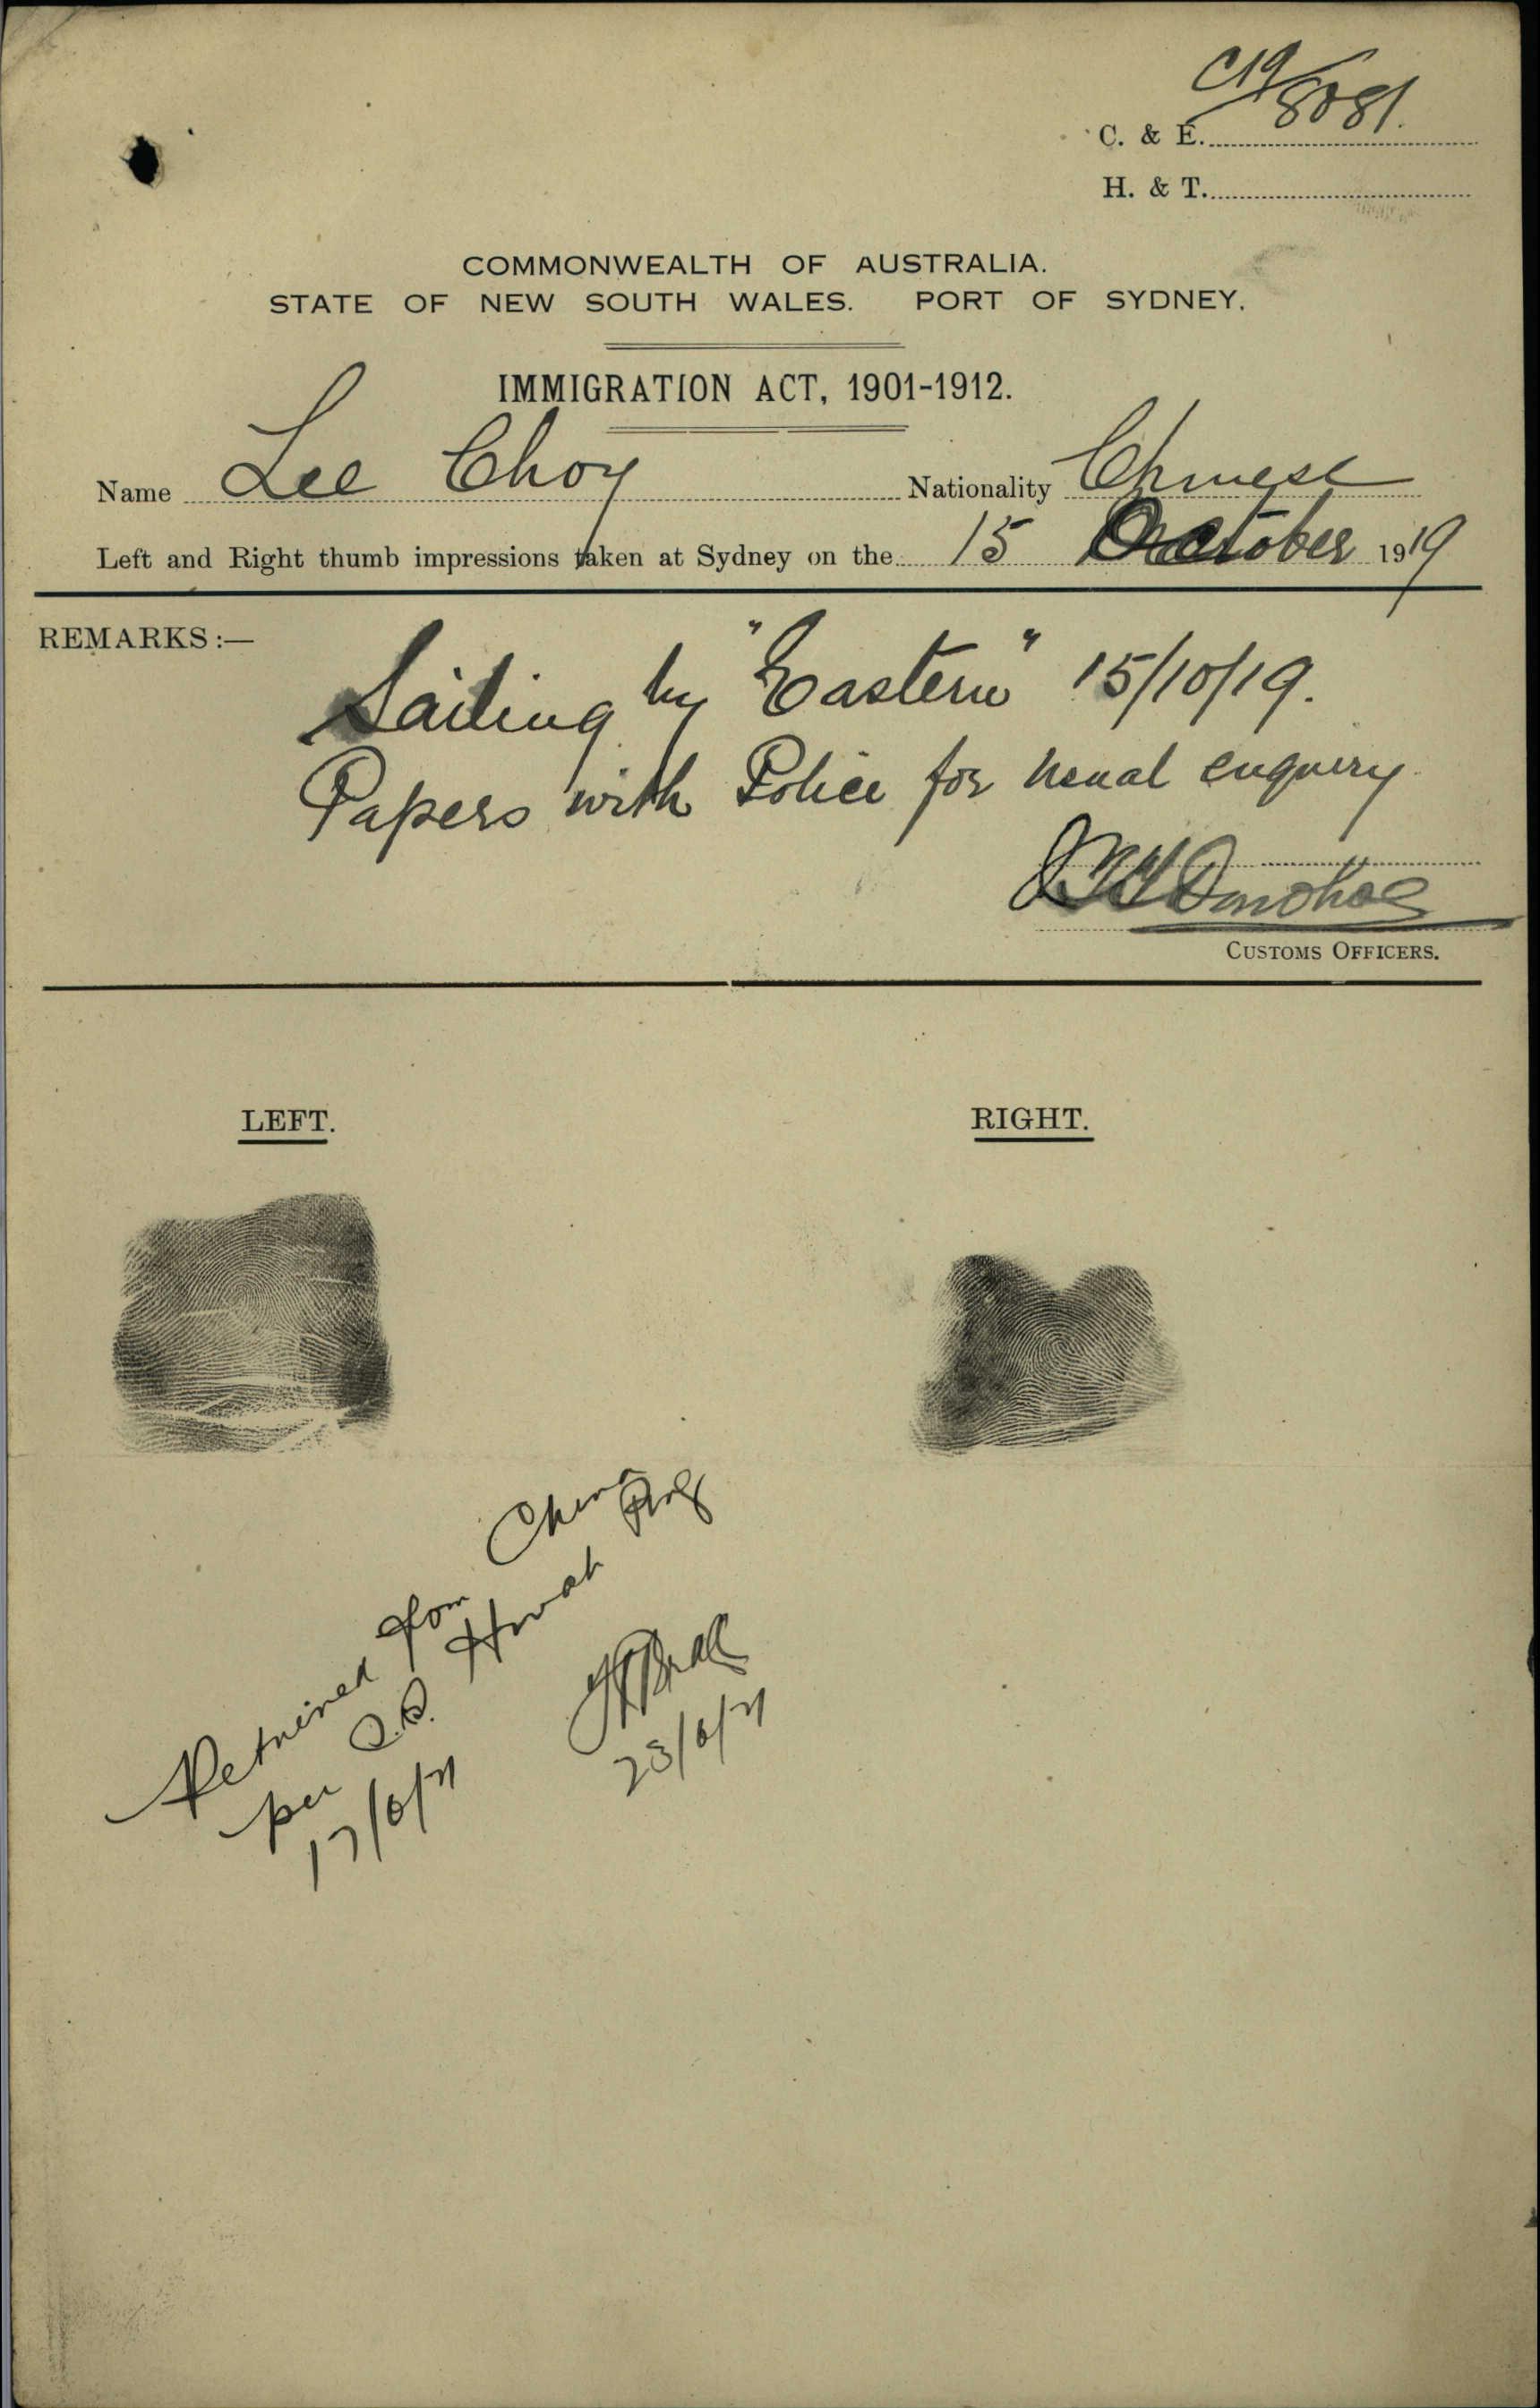 C19/8081.
C. & E.
H. & T.
COMMONWEALTH OF AUSTRALIA.
STATE OF NEW SOUTH WALES. PORT OF SYDNEY.
IMMIGRATION ACT, 1901-1912.
Name Lee Choy Nationality Chinese
Left and Right thumb impressions taken at Sydney on the 15 October 1919
REMARKS :—
Sailing by "Eastern" 15/10/19.
Papers with Police for usual enquiry
Donohoe
CUSTOMS OFFICERS.
LEFT.
RIGHT.
Returned from China
per S.S. Hwah Ping
17/6/21
23/6/21